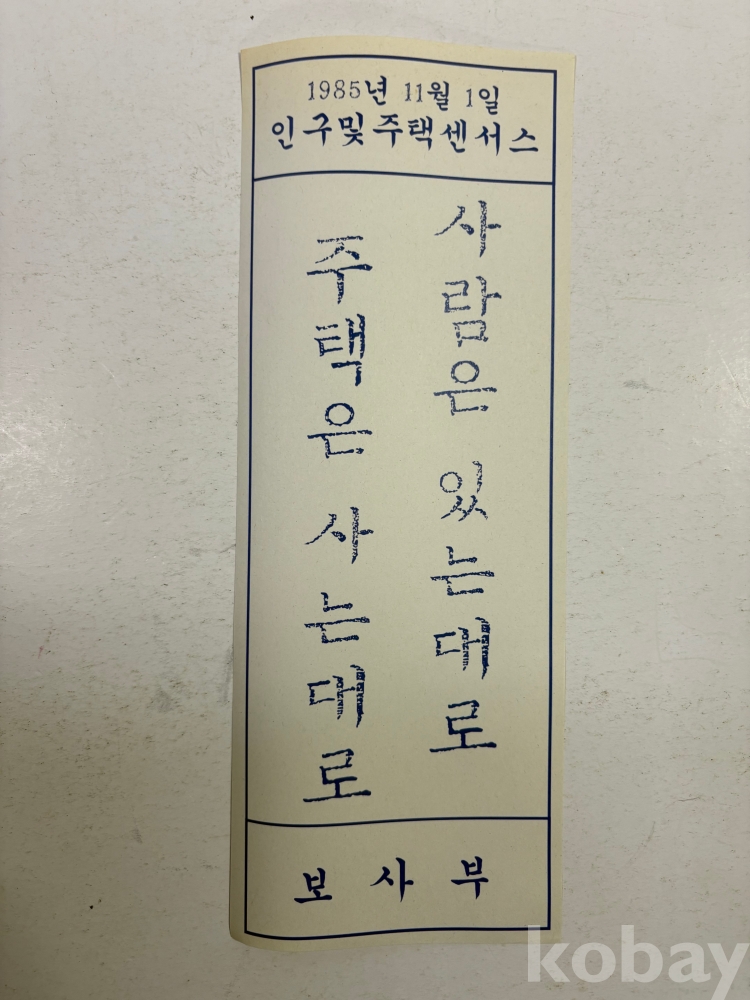 1985년 11월 1일
인구및주택센서스
사람은 있는대로
주택은 사는대로
보사부
kobay